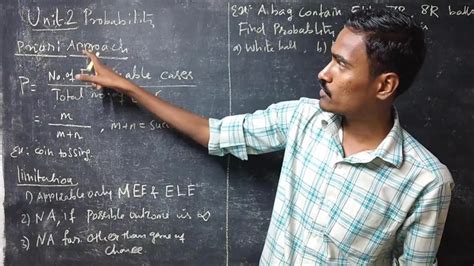 Unit:2 Probability
Priori Approach
P = No. of able cases
Total no. of
= m
m+n , m+n = succ
Ex: coin tossing
limitation
1) Applicable only MEE & ELE
2) NA, if possible outcome is ∞
3) NA for other than game of
chance.
Ex: A bag contain 8R balls
Find Probability
a) White ball, b)